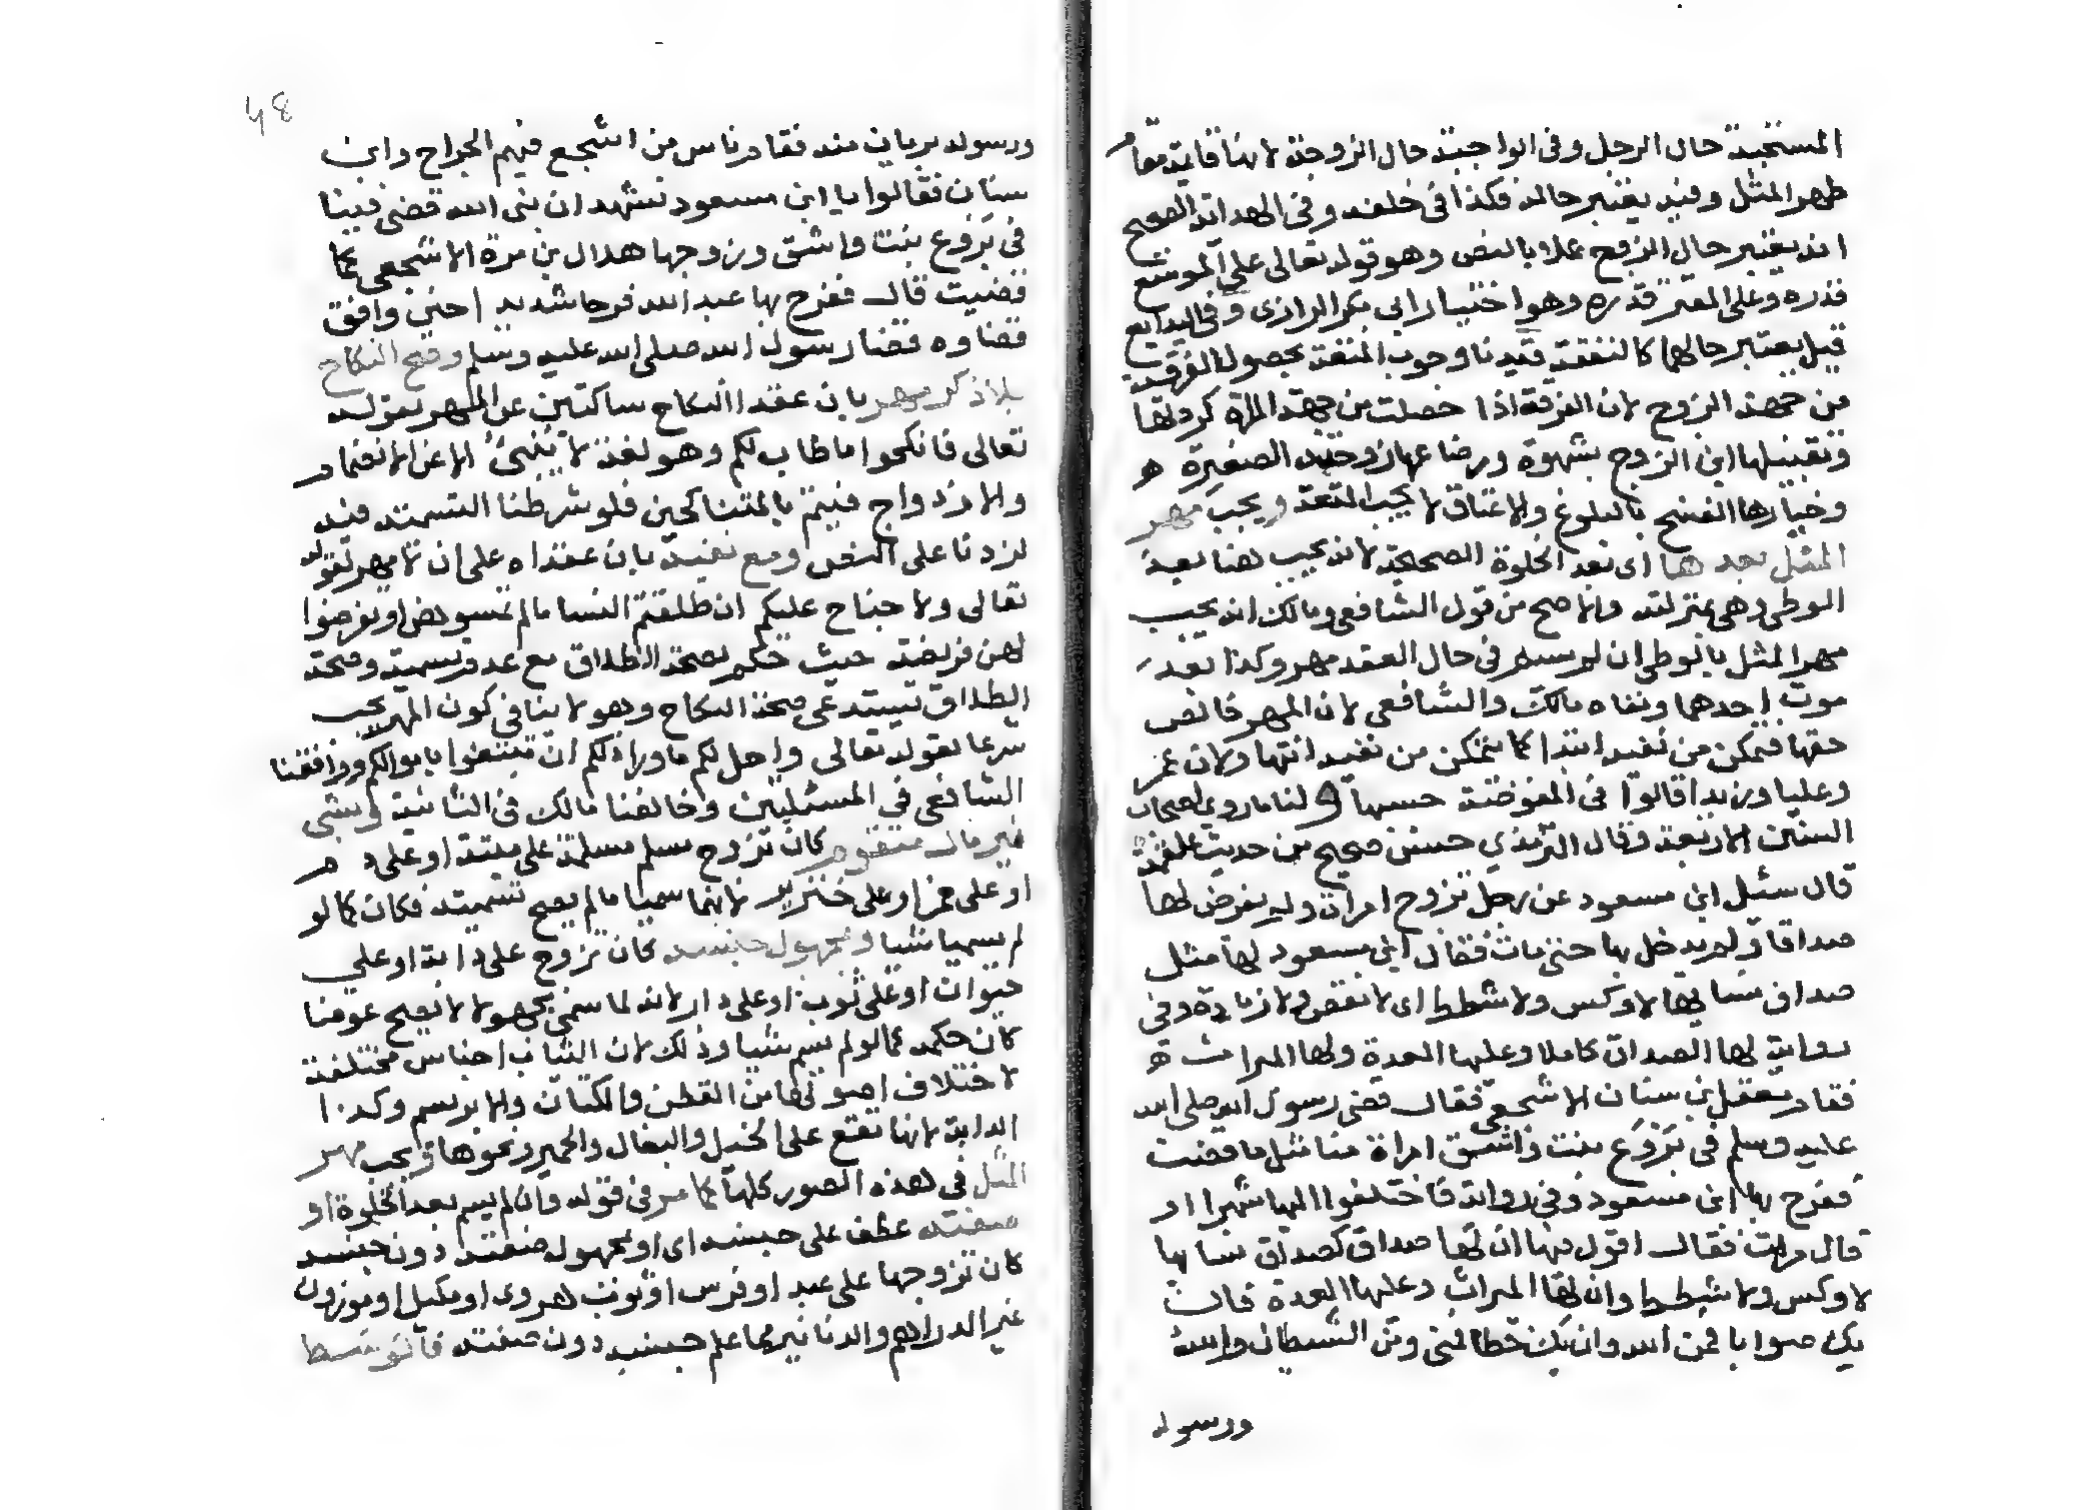 المستحبة حال الرجل وفى الواجبة حال الزوجة لانها قائمة مقام
مهر المثل وفيه يعتبر حاله فكذا فى خلفه وفى الهداية الصحيح
انه يعتبر حال الزوج عملا بالنص وهو قوله تعالى على الموسع
قدره وعلى المقتر قدره وهو اختيار ابى بكر الرازى وفى البدايع
قيل يعتبر حالهما كالنفقة قيدنا وجوب المتعة بحصول الفرقة
من جهة الزوج لان الفرقة اذا حصلت من جهة المراة كردتها
وتقبيلها ابن الزوج بشهوة ورضاعها زوجته الصغيرة ه
وخيارها الفسخ بالبلوغ والاعتاق لا يجب المتعة ويجب مهر
المثل بعد ها اى بعد الخلوة الصحيحة لانه يجب هنا بعد
الوطى وهى بمنزلته والاصح من قول الشافعى ومالك انه يجب
مهر المثل بالوطى ان لم يسم فى حال العقد مهر وكذا بعد
موت احدهما ونفاه مالك والشافعى لان المهر خالص
حقها فتمكن من نفيه ابتدا كما تتمكن من نفيه انتها ولان عمر
وعليا وزيدا قالوا فى المفوضة حسبها ولنا ما روى اصحاب
السنن الاربعة وقال الترمذي حسن صحيح من حديث علقمة
قال سئل ابن مسعود عن رجل تزوج امراة ولم يفرض لها
صداقا ولم يدخل بها حتى مات فقال ابن مسعود لها مثل
صداق نسائها لا وكس ولا شطط اى لا نقص ولا زيادة وفى
رواية لها الصداق كاملا وعليها العدة ولها الميراث ه
فقام معقل بن سنان الاشجعى فقال قضى رسول الله صلى الله
عليه وسلم فى بروع بنت واشق امراة منا مثل ما قضيت
ففرح بها ابن مسعود وفى رواية فاختلفوا اليها شهرا او
قال مرات فقال اقول فيها ان لها صداق كصداق نسائها
لا وكس ولا شطط وان لها الميراث وعليها العدة فان
يك صوابا فمن الله وان يكن خطا فمنى ومن الشيطان والله
ورسوله
48
ورسوله بريان منه فقام ناس من اشجع فيهم الجراح وابن
سنان فقالوا يا ابن مسعود نشهد ان نبى الله قضى فينا
فى بروع بنت واشق وزوجها هلال بن مرة الاشجعى كما
قضيت قال ففرح بها عبد الله فرحا شديدا حين وافق
قضاوه قضا رسول الله صلى الله عليه وسلم وصح النكاح
بلا ذكر مهر بان عقدا النكاح ساكتين عن المهر لقوله
تعالى فانكحوا ما طاب لكم وهو لغة لا ينبئ الا عن الانضمام
والازدواج فيتم بالمتناكحين فلو شرطنا التسمية فيه
لزدنا على النص ومع نفيه بان عقداه على ان لا مهر لقوله
تعالى ولا جناح عليكم ان طلقتم النسا ما لم تمسوهن او تفرضوا
لهن فريضة حيث حكم بصحة الطلاق مع عدم تسمية وصحة
الطلاق تستدعى صحة النكاح وهو لا ينافى كون المهر يجب
شرعا لقوله تعالى واحل لكم ما وراذلكم ان تبتغوا باموالكم ووافقنا
الشافعى فى المسئلتين وخالفنا مالك فى الثانية وبشى
غير مال متقوم كان تزوج مسلم مسلمة على ميتة او على دم
او على خمر او على خنزير لانهما سميا ما لم يصح تسميته فكان كما لو
لم يسميا شيا ومجهول جنسه كان تزوج على دابة او على
حيوان او على ثوب او على دار لانه لما سمى مجهولا لا يصح عوضا
كان حكمه كما لو لم يسم شيا وذلك لان الثياب اجناس مختلفة
لاختلاف اصولها من القطن والكتان والابريسم وكذا
الدابة لانها تقع على الخيل والبغال والحمير ونحوها ويجب مهر
المثل فى هذه الصور كلها كما مر فى قوله وان لم يسم بعد الخلوة او
صفته عطف على جنسه اى او مجهول صفته دون جنسه
كان تزوجها على عبد او فرس او ثوب هروى او مكيل او موزون
غير الدراهم والدنانير مما علم جنسه دون صفته فالوسط